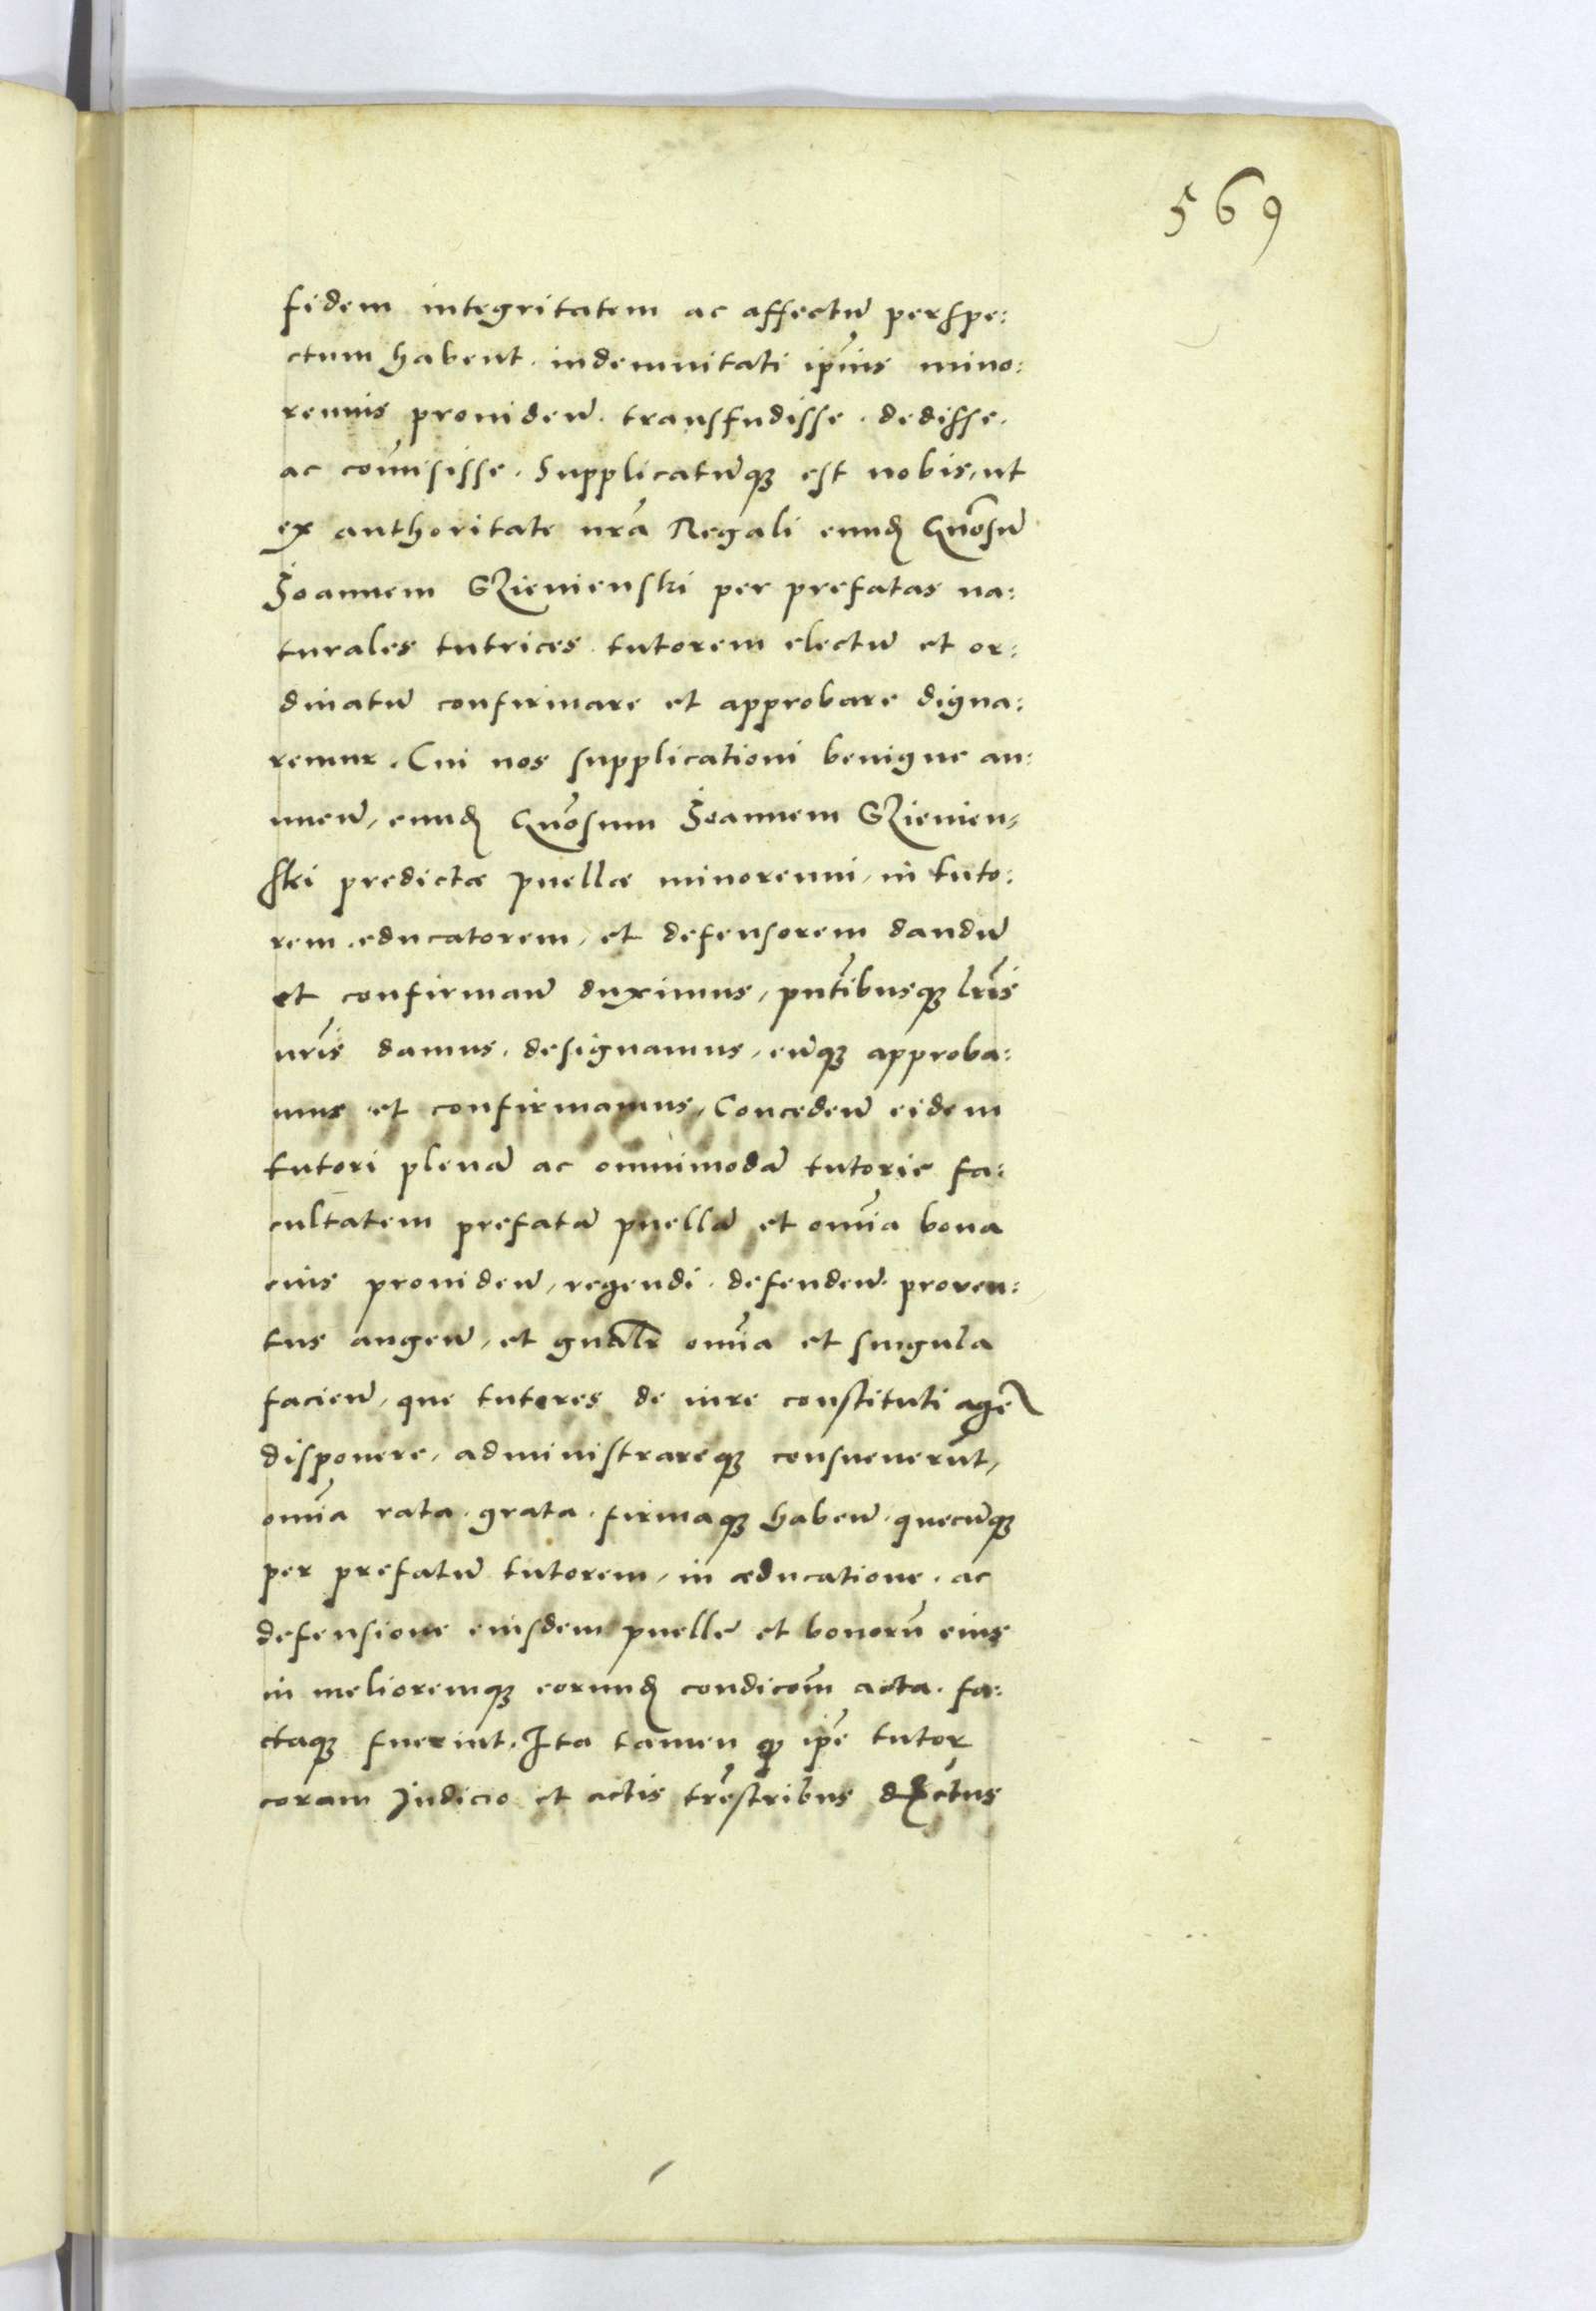 569
fidem integritatem ac affectū perspe:
ctum habent. indemnitati ipīus mino:
rennis providen̄. transfudisse. dedisse.
ac com̄isisse. Supplicatūq3 est nobis, ut
ex authoritate nrā Regali eund̄ Gn̄osū
Joannem Gzienienski per prefatas na:
turales tutrices. tutorem electū et or:
dinatū confirmare et approbare digna:
remur. Cui nos supplicationi benigne an:
nuen̄, eund̄ Gn̄osum Joannem Gzienien,
ski predictæ puellæ minorenni, in tuto:
rem. educatorem, et defensorem dandū
et confirman̄ duximus, pn̄tibusq3 lrīs
nrīs damus. designamus, eūq3 approba:
mus et confirmamus, Conceden̄ eidem
tutori plenā ac omnimodā tutorie fa:
cultatem prefatā puellā et om̄ia bona
eius providen̄, regendi. defenden̄. proven:
tus augen̄, et gn̄alr om̄ia et singula
facien̄, que tutores de iure constituti age
disponere, administrareq3 consueverūt,
om̄ia rata. grata. firmaq3 haben̄. quecūq3
per prefatū tutorem, in æducatione. ac
defensione eiusdem puelle et bonorū eius
in melioremq3 eorund̄ condicōm acta. fa:
ctaq3 fuerint. Ita tamen ꝙ ip̄e tutor
coram Judicio et actis trēstribus